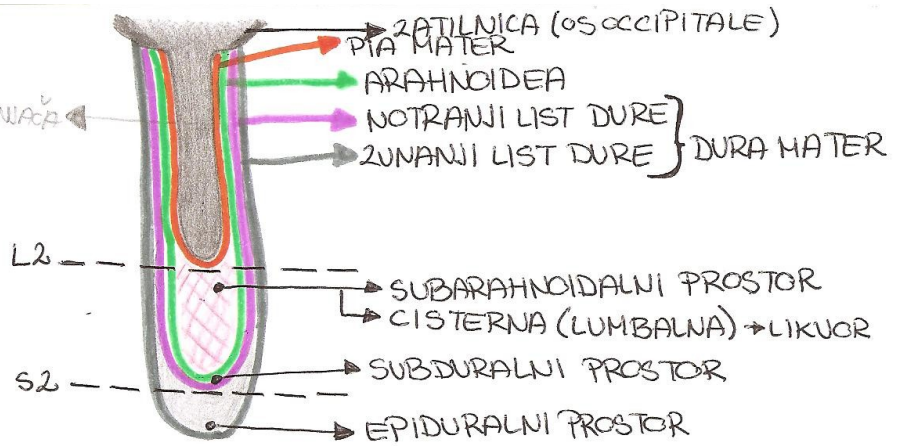 ZATILNICA (OS OCCIPITALE)
PIA MATER
ARAHNOIDEA
NOTRANJI LIST DURE
ZUNANJI LIST DURE
DURA MATER
L2
SUBARAHNOIDALNI PROSTOR
CISTERNA (LUMBALNA) → LIKVOR
SUBDURALNI PROSTOR
S2
EPIDURALNI PROSTOR